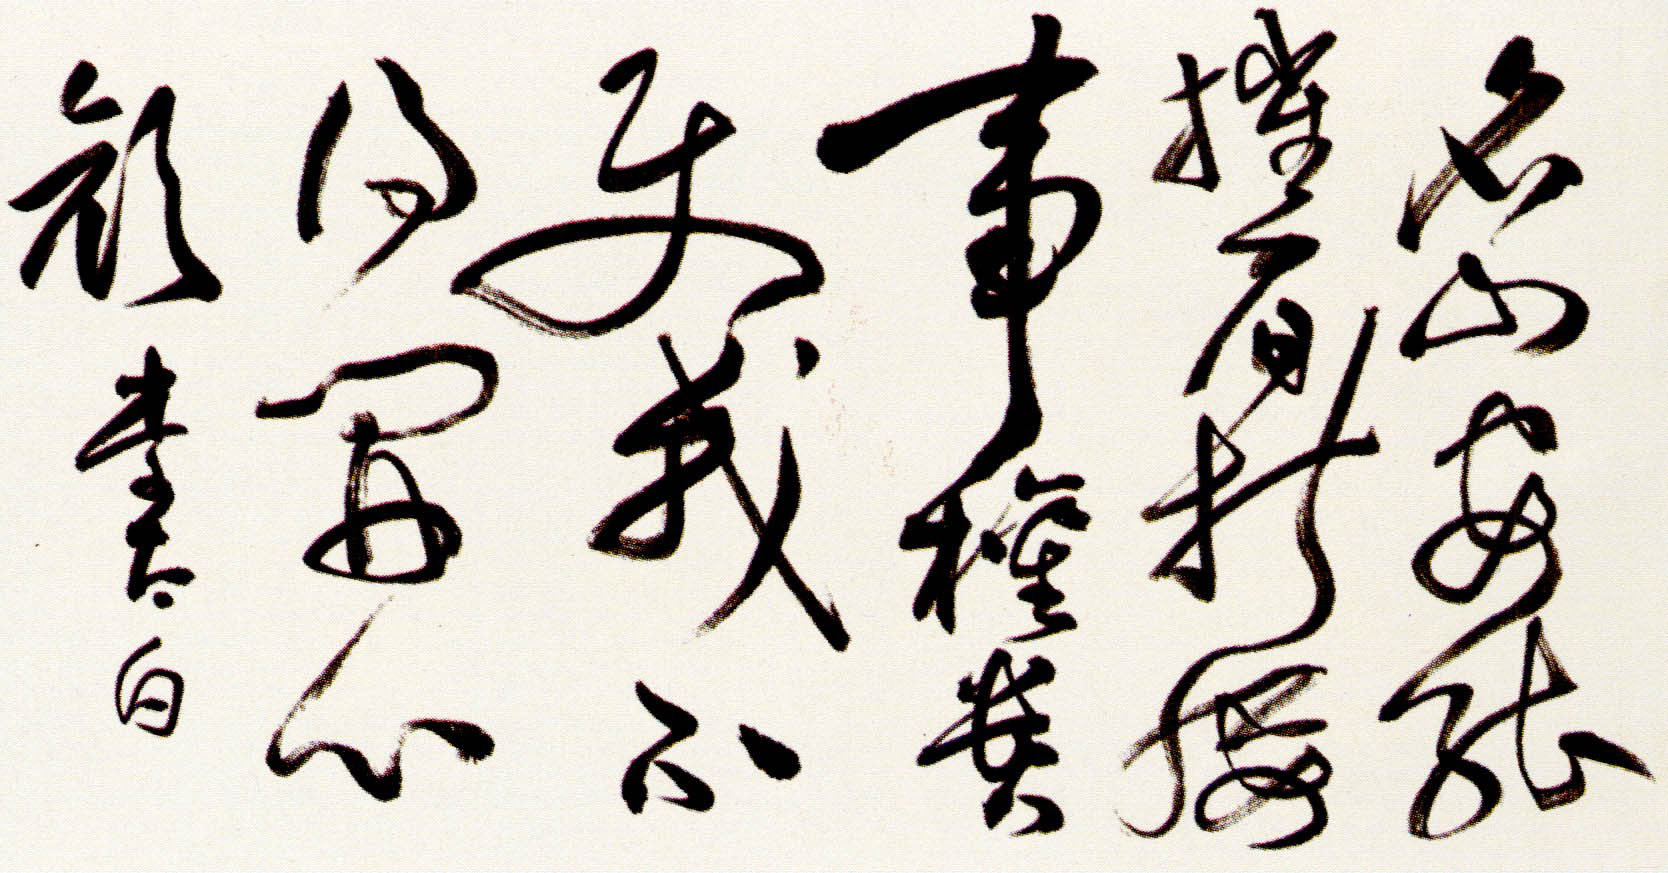 名山安能
摧眉折腰
事權貴
使我不
得開心
顏 李太白